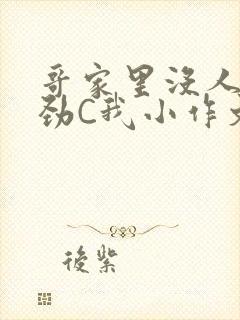 哥家里没人
劲C我小作文
後紫